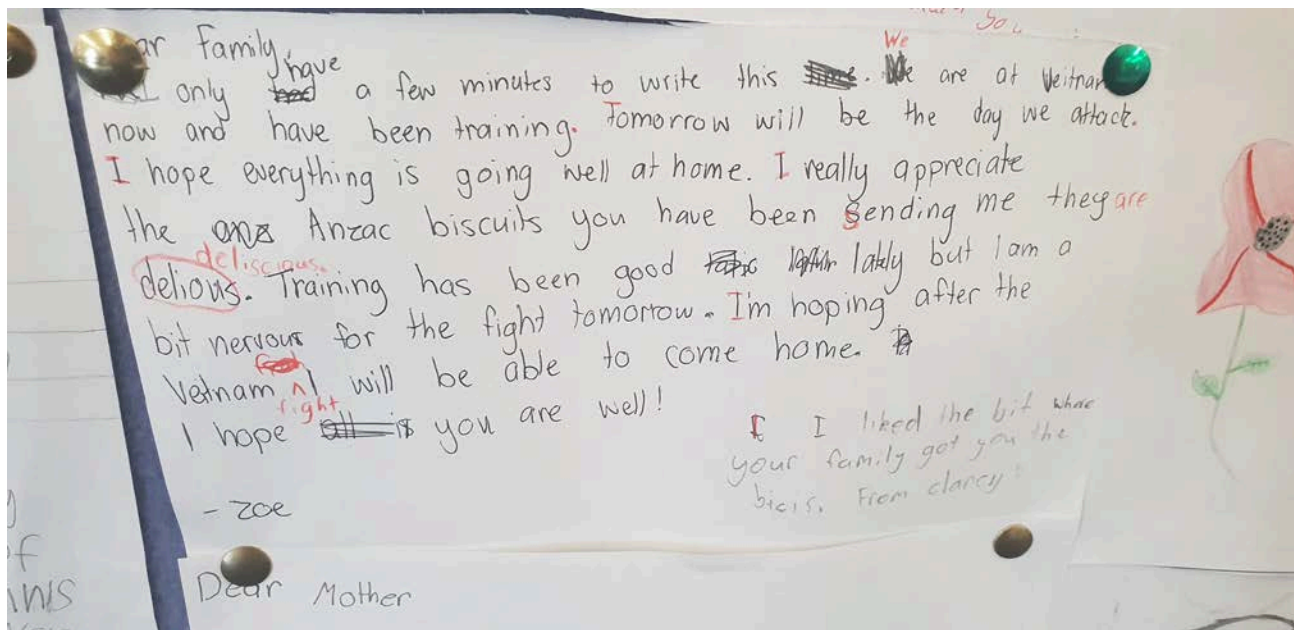 you
ar family,
have
We
only had a few minutes to write this time. We are at Veitnam
now and have been training. Tomorrow will be the day we attack.
I hope everything is going well at home. I really appreciate
the anz Anzac biscuits you have been Sending me they are
deliscious.
delious. Training has been good lately but I am a
bit nervous for the fight tomorrow. I'm hoping after the
Vetnam ^ I will be able to come home.
fight
I hope all is you are well!
- zoe
I I liked the bit where
your family got you the
bicis. From clarcy!
Dear Mother
of